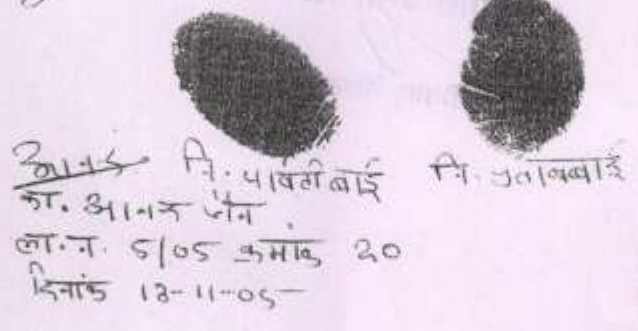 आनंद नि. पार्वती बाई नि. प्रतापबाई
का. आनन्द जैन
ला. न. 5/05 क्रमांक 20
दिनांक 13-11-05